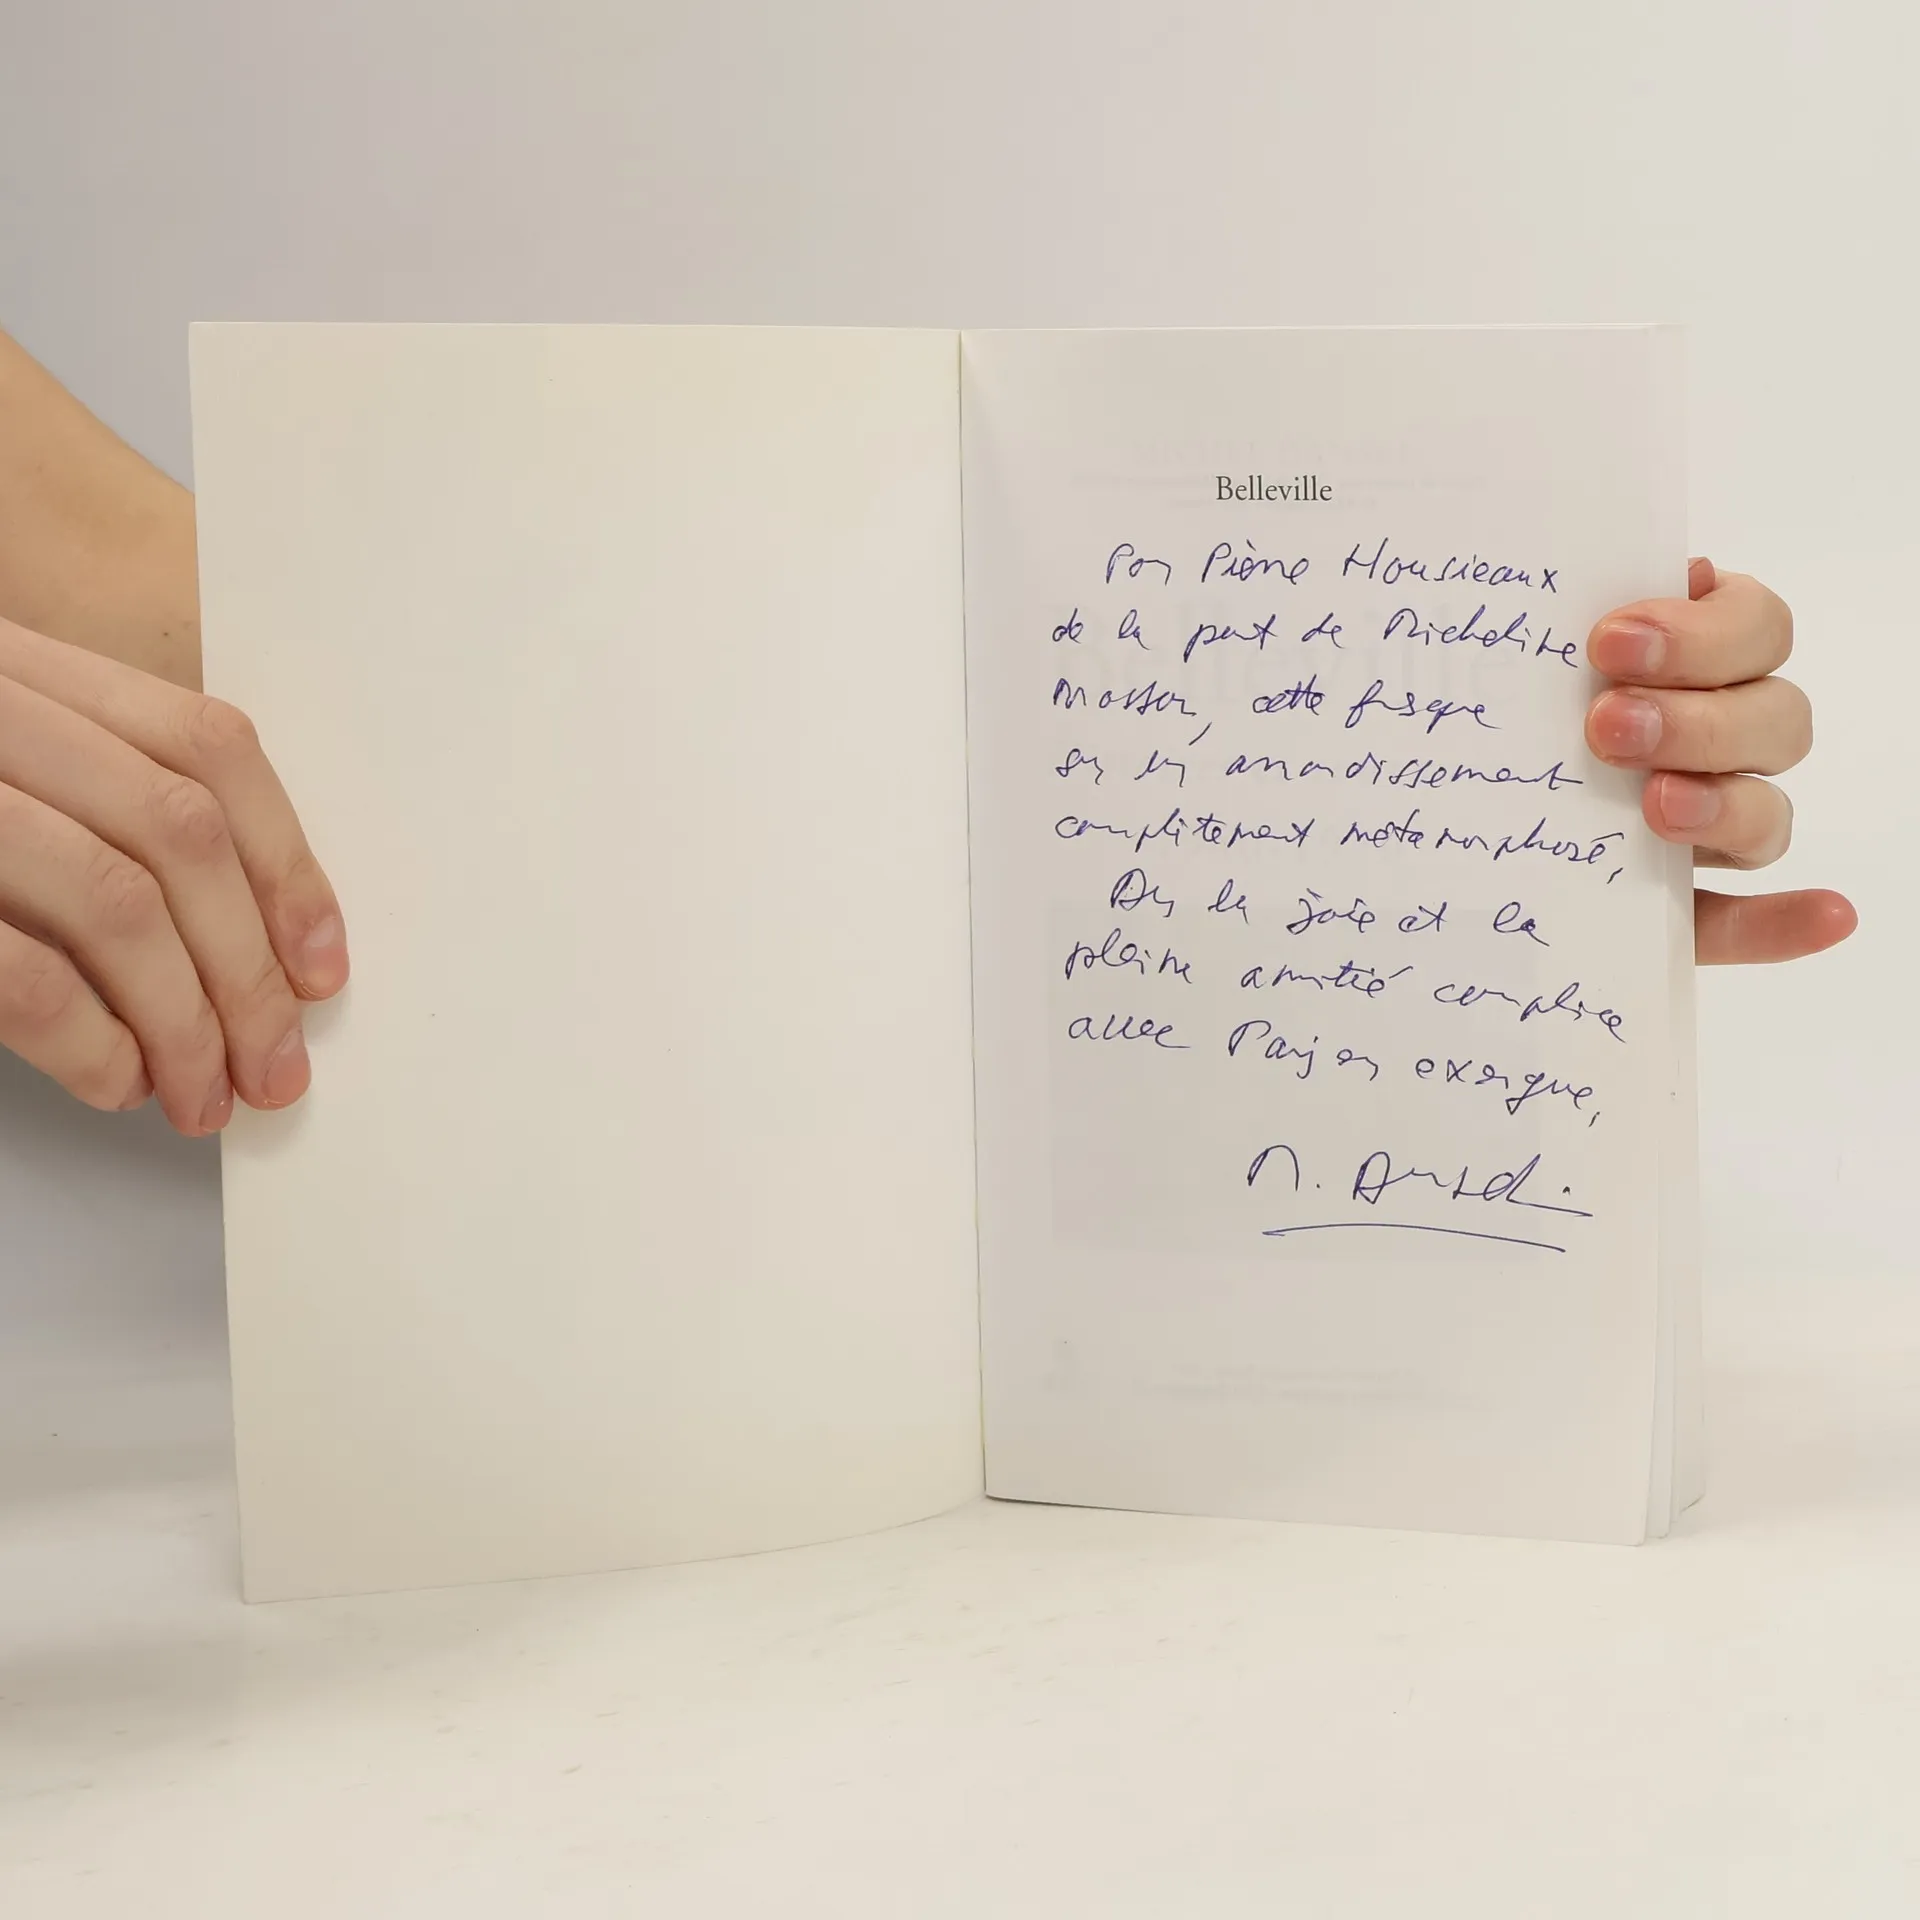 Belleville
Pour Pierre Housieaux
de la part de Micheline
Masson, cette fresque
sur un arrondissement
complètement métamorphosé,
Dans la joie et la
pleine amitié complice
avec Paris en exergue,
M.